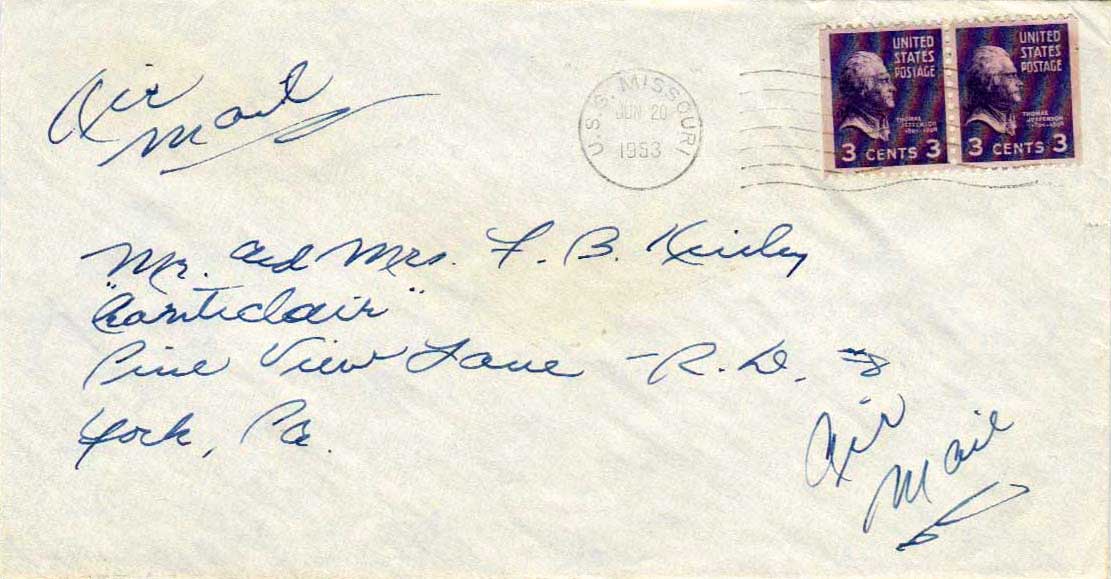 Air
Mail
U.S.S. MISSOURI
JUN 20
1953
UNITED
STATES
POSTAGE
THOMAS
JEFFERSON
3 CENTS 3
UNITED
STATES
POSTAGE
THOMAS
JEFFERSON
3 CENTS 3
Mr. and Mrs. F. B.
Pine View Lane - R. D.
York, Pa.
Air
Mail